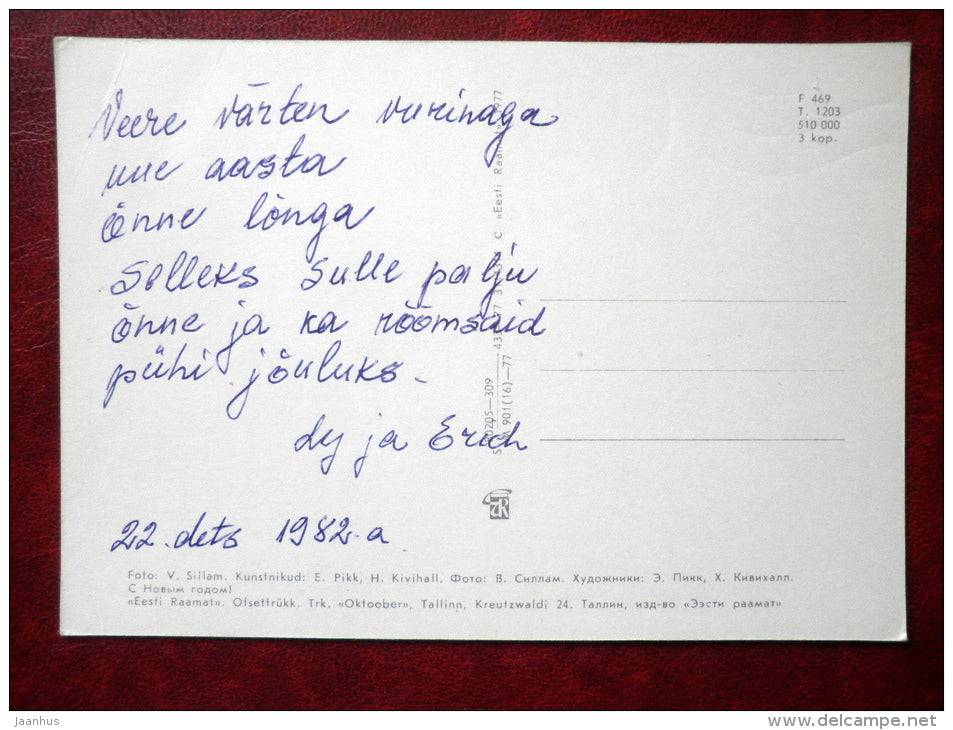 Veere värten vurinaga
uue aasta
õnne lõnga
Selleks Sulle palju
õnne ja ka rõõmsaid
pühi jõuluks.
Ly ja Erich
22. dets 1982.a
F 469
T. 1203
510 000
3 kop.
C «Eesti
0205—309
901(16)—77
Foto: V. Sillam. Kunstnikud: E. Pikk, H. Kivihall. Фото: В. Силлам. Художники: Э. Пикк, Х. Кивихалл.
С Новым годом!
«Eesti Raamat». Ofsettrükk. Trk. «Oktoober», Tallinn, Kreutzwaldi 24. Таллин, изд-во «Ээсти раамат»
jaanhus
www.delcampe.net